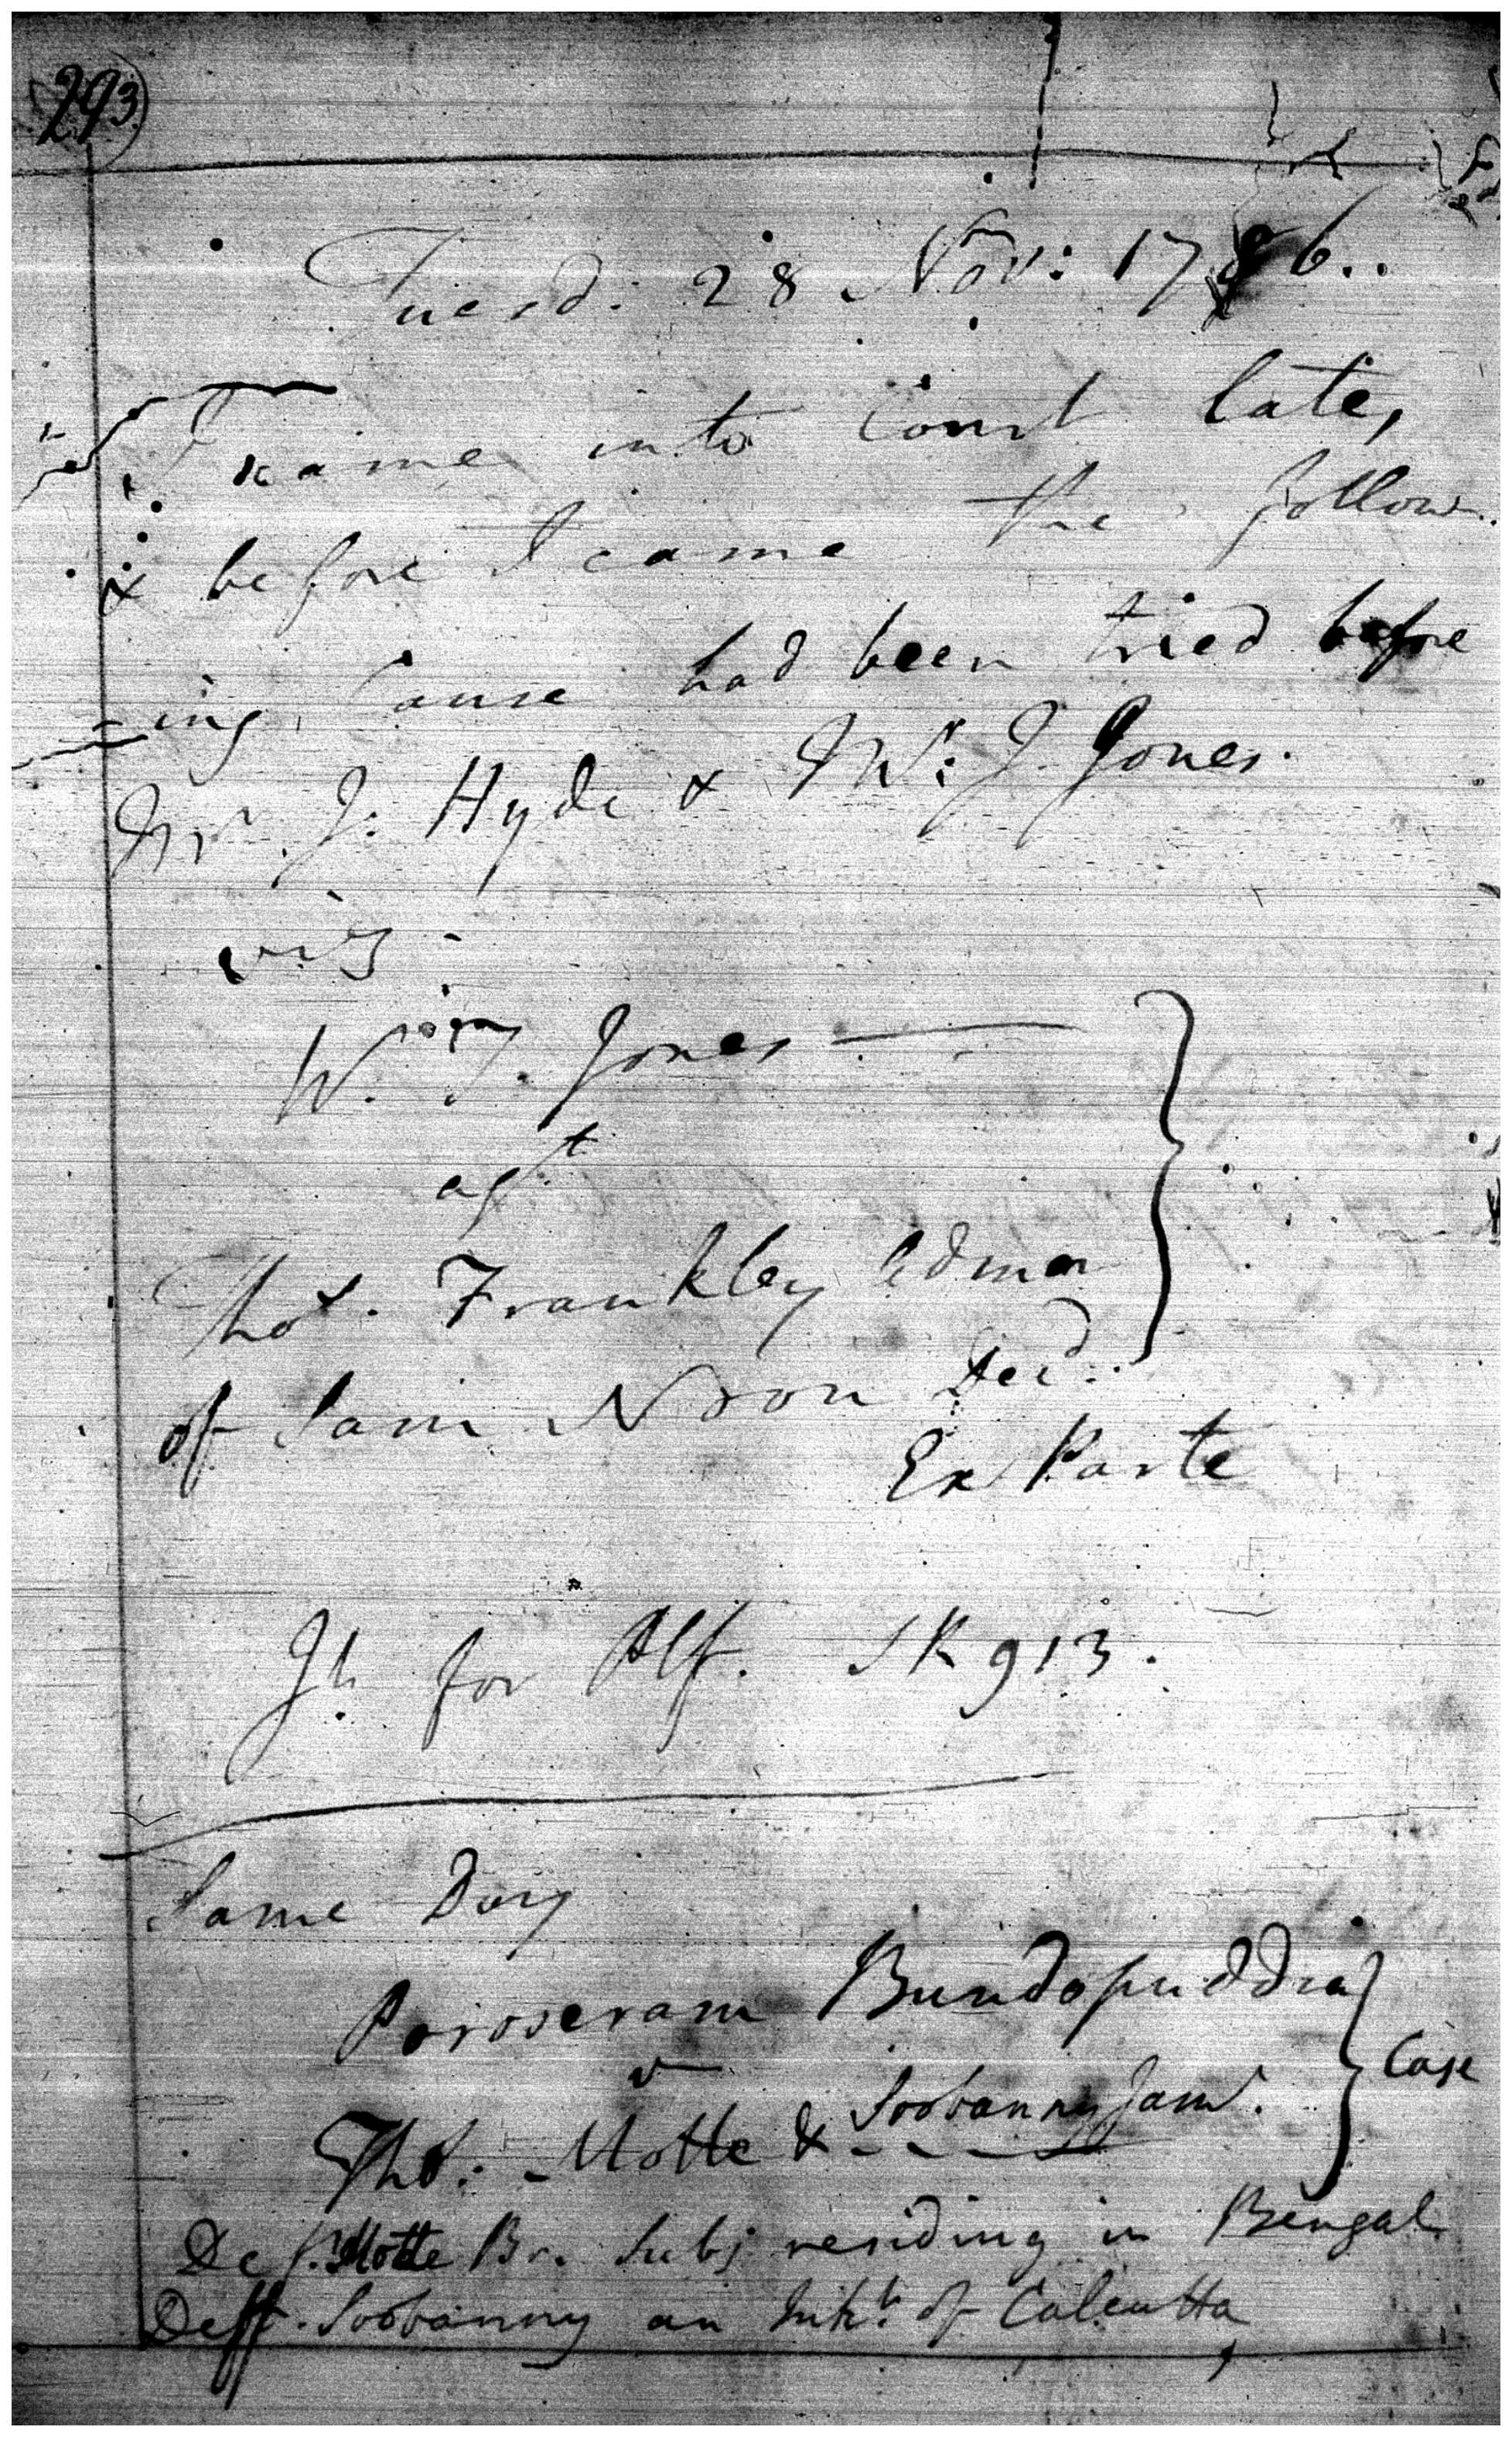 293
Tuesd: 28 Novr: 1786..
I came into Court late,
& before I came the follow
=ing Cause had been tried before
Mr J: Hyde & Mr: J. Jones.
viz -
Wm. T. Jones
agst
Thos. Frankley admor
of Sam Noon Decd:
Ex Parte
Jt. for Plf. SR 913.
Same Day
Poroseram Bundopuddia
v
Thos: Motte & Soobanny Jaw.
Case
Def. Motte Br. Subj residing in Bengal
Deft. Soobanny an Inht. of Calcutta